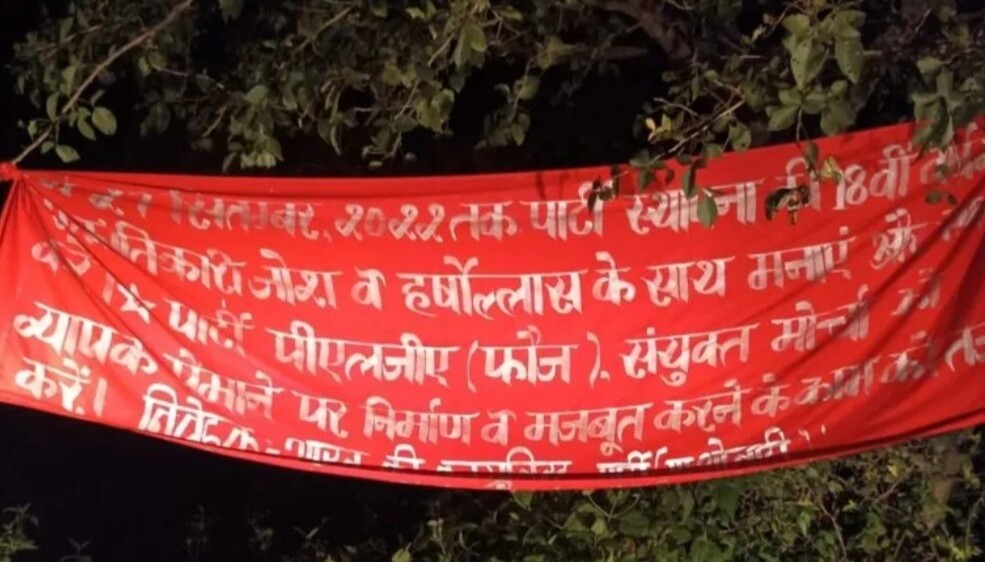 सितम्बर, २०२२ तक पार्टी स्थापना की 18वीं
जोश व हर्षोल्लास के साथ मनाएं और
पार्टी पीएलजीए (फौज), संयुक्त मोर्चा को
व्यापक पैमाने पर निर्माण व मजबूत करने के काम को
करें।
निवेदक:- भारत की कम्युनिस्ट पार्टी (माओवादी)